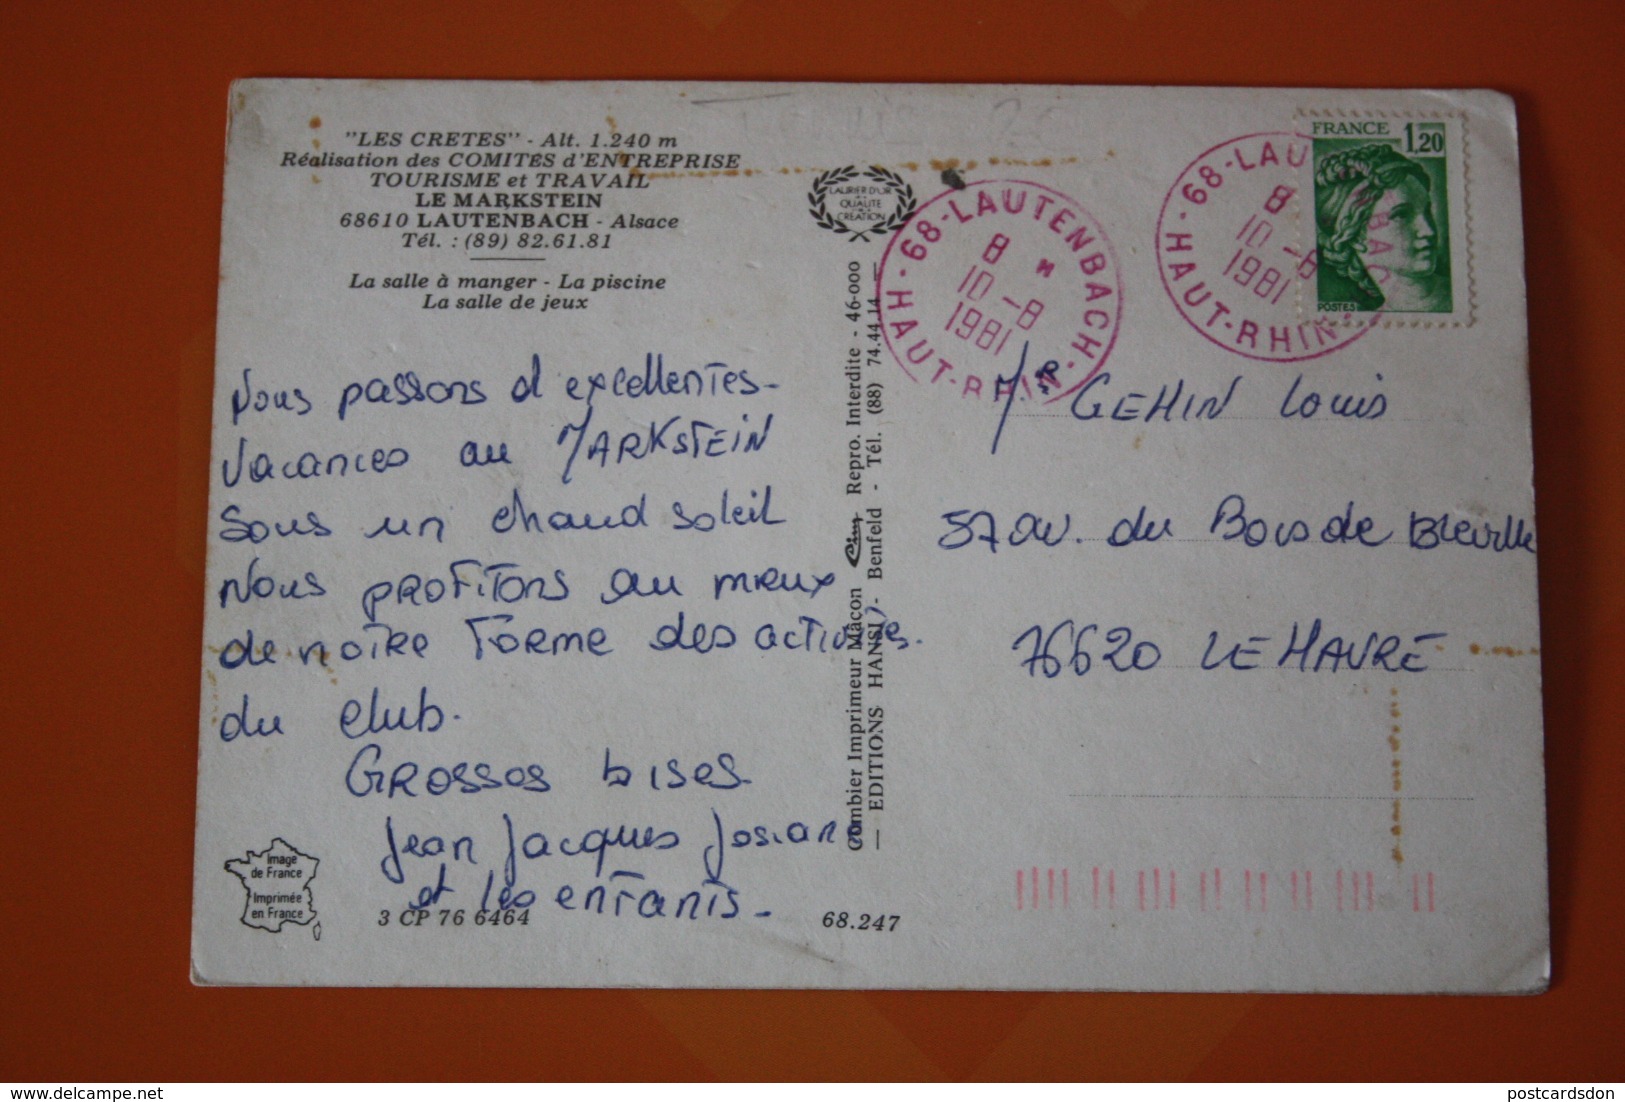 "LES CRETES" - Alt. 1.240 m
Réalisation des COMITES d'ENTREPRISE
TOURISME et TRAVAIL
LE MARKSTEIN
68610 LAUTENBACH - Alsace
Tél. : (89) 82.61.81
La salle à manger - La piscine
La salle de jeux
Nous passons d excellentes
Vacances au MARKSTEIN
Sous un chaud soleil
Nous profitons au mieux
de notre forme des activités.
du club.
Grosses bises
Jean Jacques Josiane
et les enfants.
Image
de France
Imprimée
en France
3 CP 76 6464
68.247
LAURIER D'OR
QUALITE
CREATION
Combier Imprimeur Mâcon Cim Repro. Interdite - 46-000
— EDITIONS HANSI - Benfeld - Tél. (88) 74.44.14 —
68-LAUTENBACH
8 *
10 -8
1981
HAUT-RHIN
68-LAUTENBACH
8
10 -8
1981
HAUT-RHIN
FRANCE 1,20
POSTES
Mr GEHIN Louis
57 av. du Bois de Bleville
76620 LE HAVRE
delcampe.net
postcardsdon